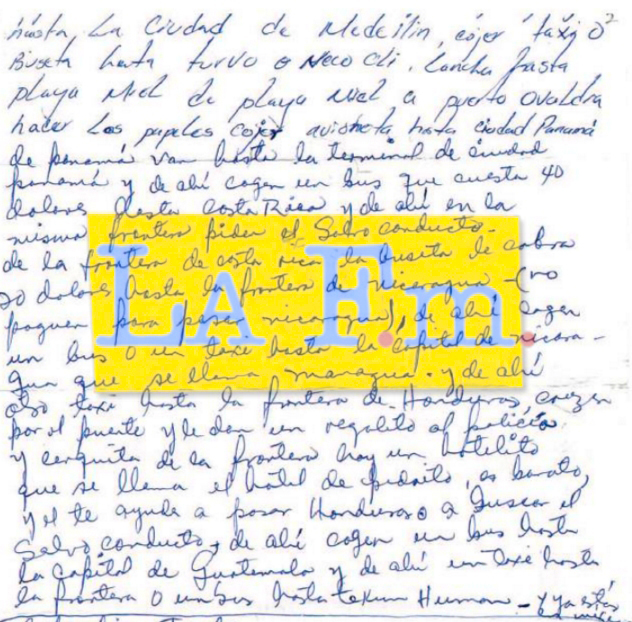 hasta La Ciudad de Medellin, cojer taxi O
Buseta hasta turvo o Neco cli. Lancha hasta
playa Miel de playa Miel a puerto Ovaldia
hacer Los papeles cojer avioneta hasta ciudad Panamá
de panamá van hasta la terminal de ciudad
panamá y de ahí cogen un bus que cuesta 40
dolares hasta costa Rica y de ahí en la
misma frontera piden el Salvo conducto.
de la frontera de costa rica la buseta le cobra
30 dolares hasta la frontera de nicaragua - (no
paguen para pasar nicaragua), de ahí cogen
un bus o un taxi hasta la capital de nicara-
gua que se llama managua. y de ahí
otro taxi hasta la frontera de Honduras, cruzen
por el puente y le dan un regalito al policía
y cerquita de la frontera hay un hotelito
que se llama el hotel de , es barato,
y el te ayuda a pasar Honduras o a buscar el
Salvo conducto, de ahí cogen un bus hasta
la capital de Guatemala y de ahí un taxi hasta
la frontera o un bus hasta tekum Human - y ya estás
LA F.m.